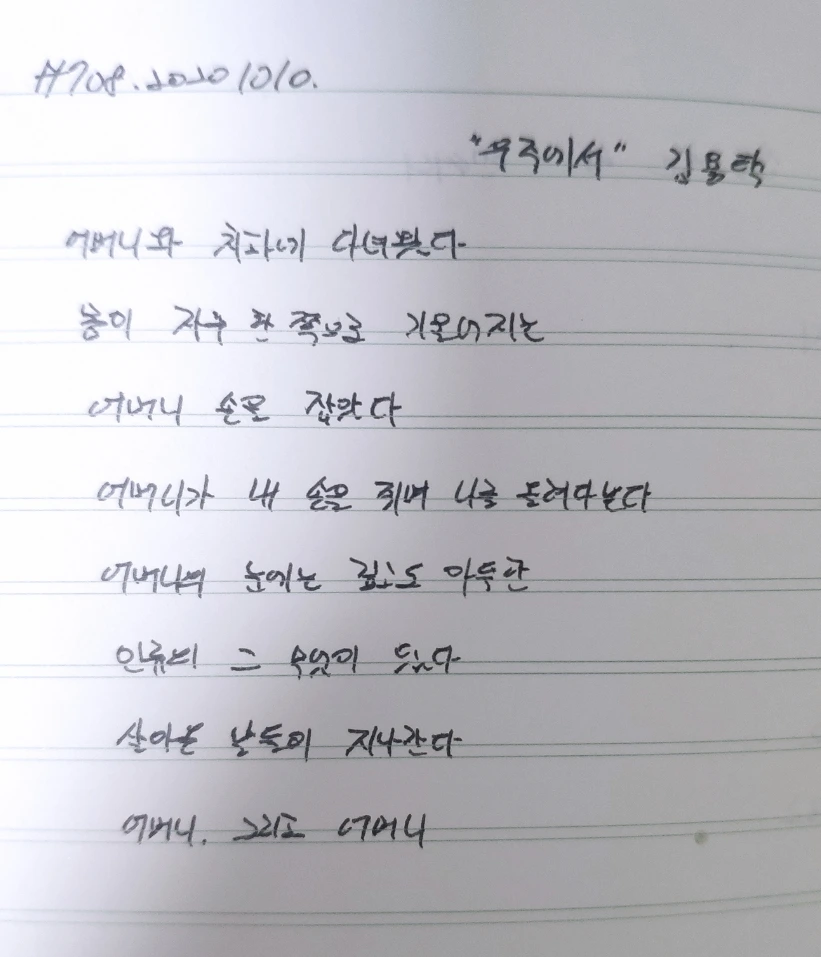 #708. 20201010.
"우주에서" 김용택
어머니와 치과에 다녀왔다
몸이 자꾸 한 쪽으로 기울어지는
어머니 손을 잡았다
어머니가 내 손을 쥐며 나를 올려다본다
어머니의 눈에는 깊고도 아득한
인류의 그 무엇이 있다
살아온 날들이 지나간다
어머니. 그리고 어머니